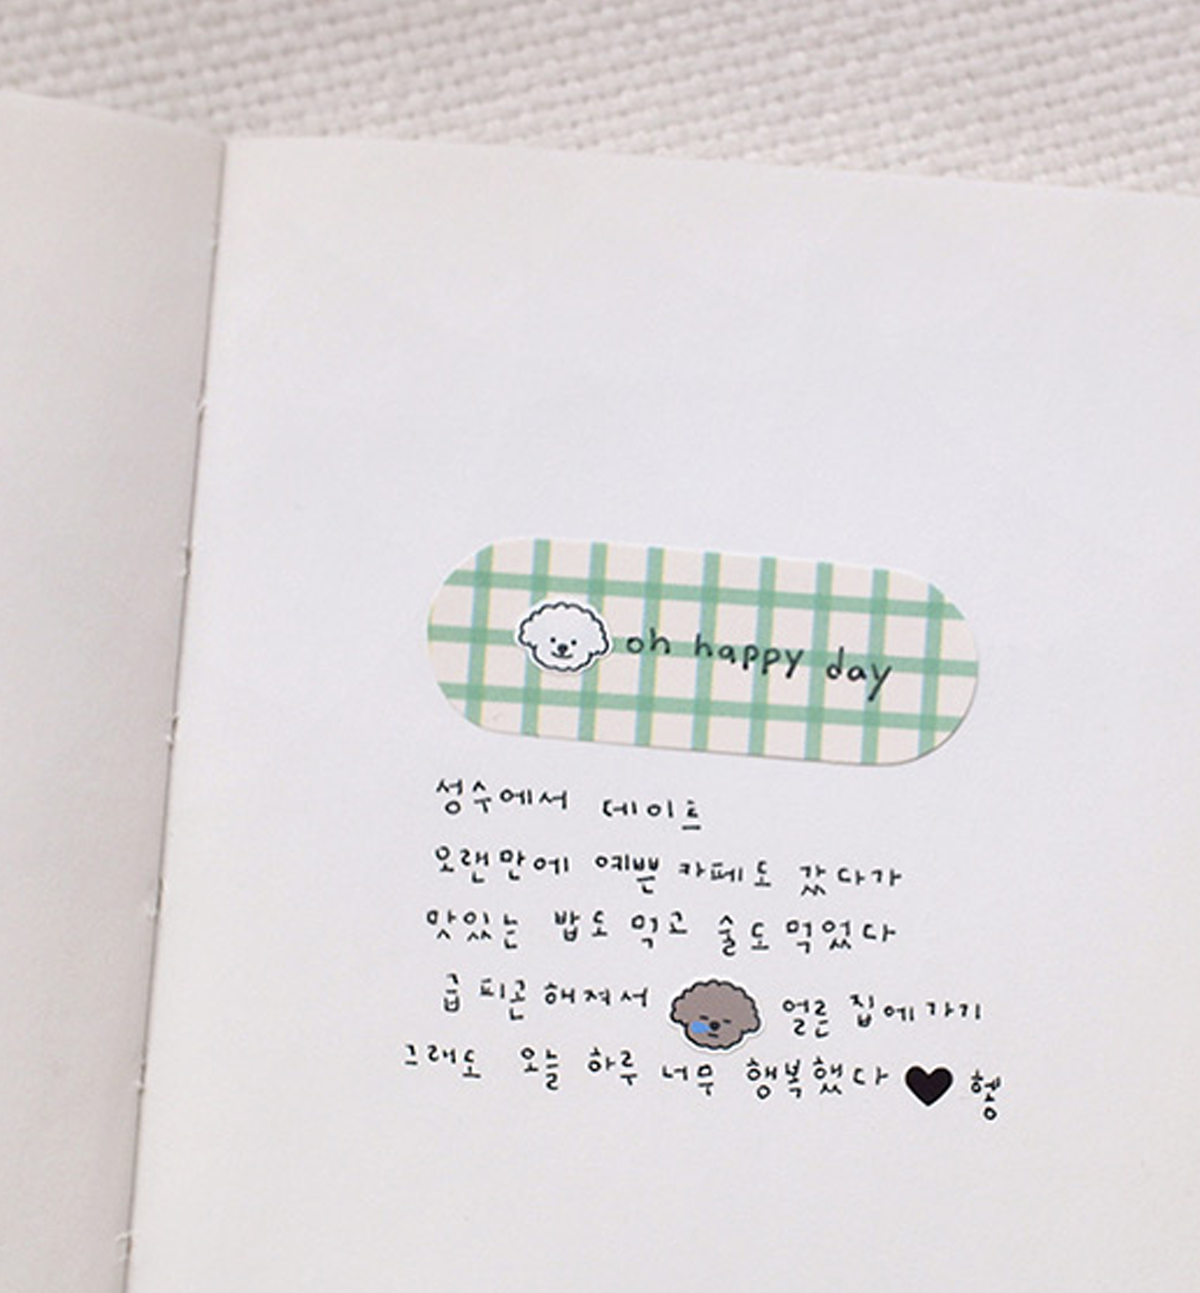 oh happy day
성수에서 데이트
오랜만에 예쁜 카페도 갔다가
맛있는 밥도 먹고 술도 먹었다
급 피곤해져서 얼른 집에 가기
그래도 오늘 하루 너무 행복했다 ♥ 헹